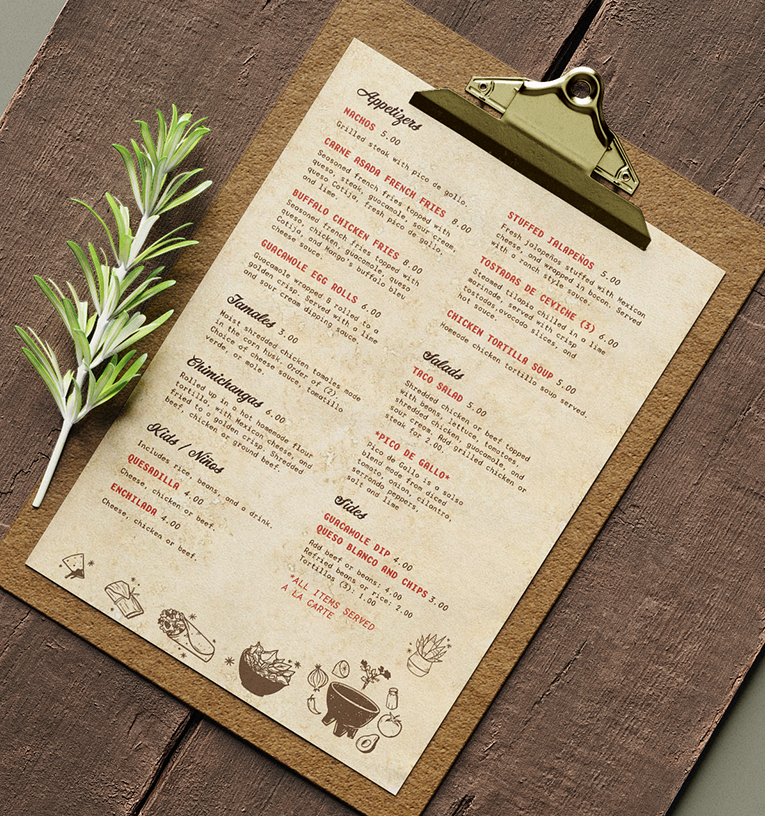 Appetizers
NACHOS 5.00
Grilled steak with pico de gallo.
CARNE ASADA FRENCH FRIES 8.00
Seasoned french fries topped with
queso, steak, guacamole, sour cream,
queso Cotija, fresh pico de gallo,
and lime.
BUFFALO CHICKEN FRIES 8.00
Seasoned french fries topped with
queso, chicken, guacamole, queso
Cotija, and Mango's buffalo, bleu
cheese sauce.
GUACAMOLE EGG ROLLS 6.00
Guacamole wrapped & rolled to a
golden crisp. Served with a lime
and sour cream dipping sauce.
STUFFED JALAPEÑOS 5.00
Fresh jalapeños stuffed with Mexican
cheese, and wrapped in bacon. Served
with a ranch style sauce.
TOSTADAS DE CEVICHE (3) 6.00
Steamed tilapia chilled in a lime
marinade, served with crisp
tostadas, avocado slices, and
hot sauce.
CHICKEN TORTILLA SOUP 5.00
Homemade chicken tortilla soup served.
Tamales 3.00
Moist shredded chicken tamales made
in the corn husk. Order of (2).
Choice of cheese sauce, tomatillo
verde, or mole.
Chimichangas 6.00
Rolled up in a hot homemade flour
tortilla, with Mexican cheese, and
fried to a golden crisp. Shredded
beef, chicken or ground beef.
Kids / Niños
Includes rice, beans, and a drink.
QUESADILLA 4.00
Cheese, chicken or beef.
ENCHILADA 4.00
Cheese, chicken or beef.
Salads
TACO SALAD 5.00
Shredded chicken or beef topped
with beans, lettuce, tomatoes,
sour cream, guacamole, and
steak for 2.00.
*PICO DE GALLO*
Pico de Gallo is a salsa
blend made from diced
tomato, onion, cilantro,
serrando peppers,
salt and lime
Sides
GUACAMOLE DIP 4.00
QUESO BLANCO AND CHIPS 3.00
Add beef or beans: 4.00
Refried beans or rice: 2.00
Tortillas (3): 1.00
*ALL ITEMS SERVED
A LA CARTE